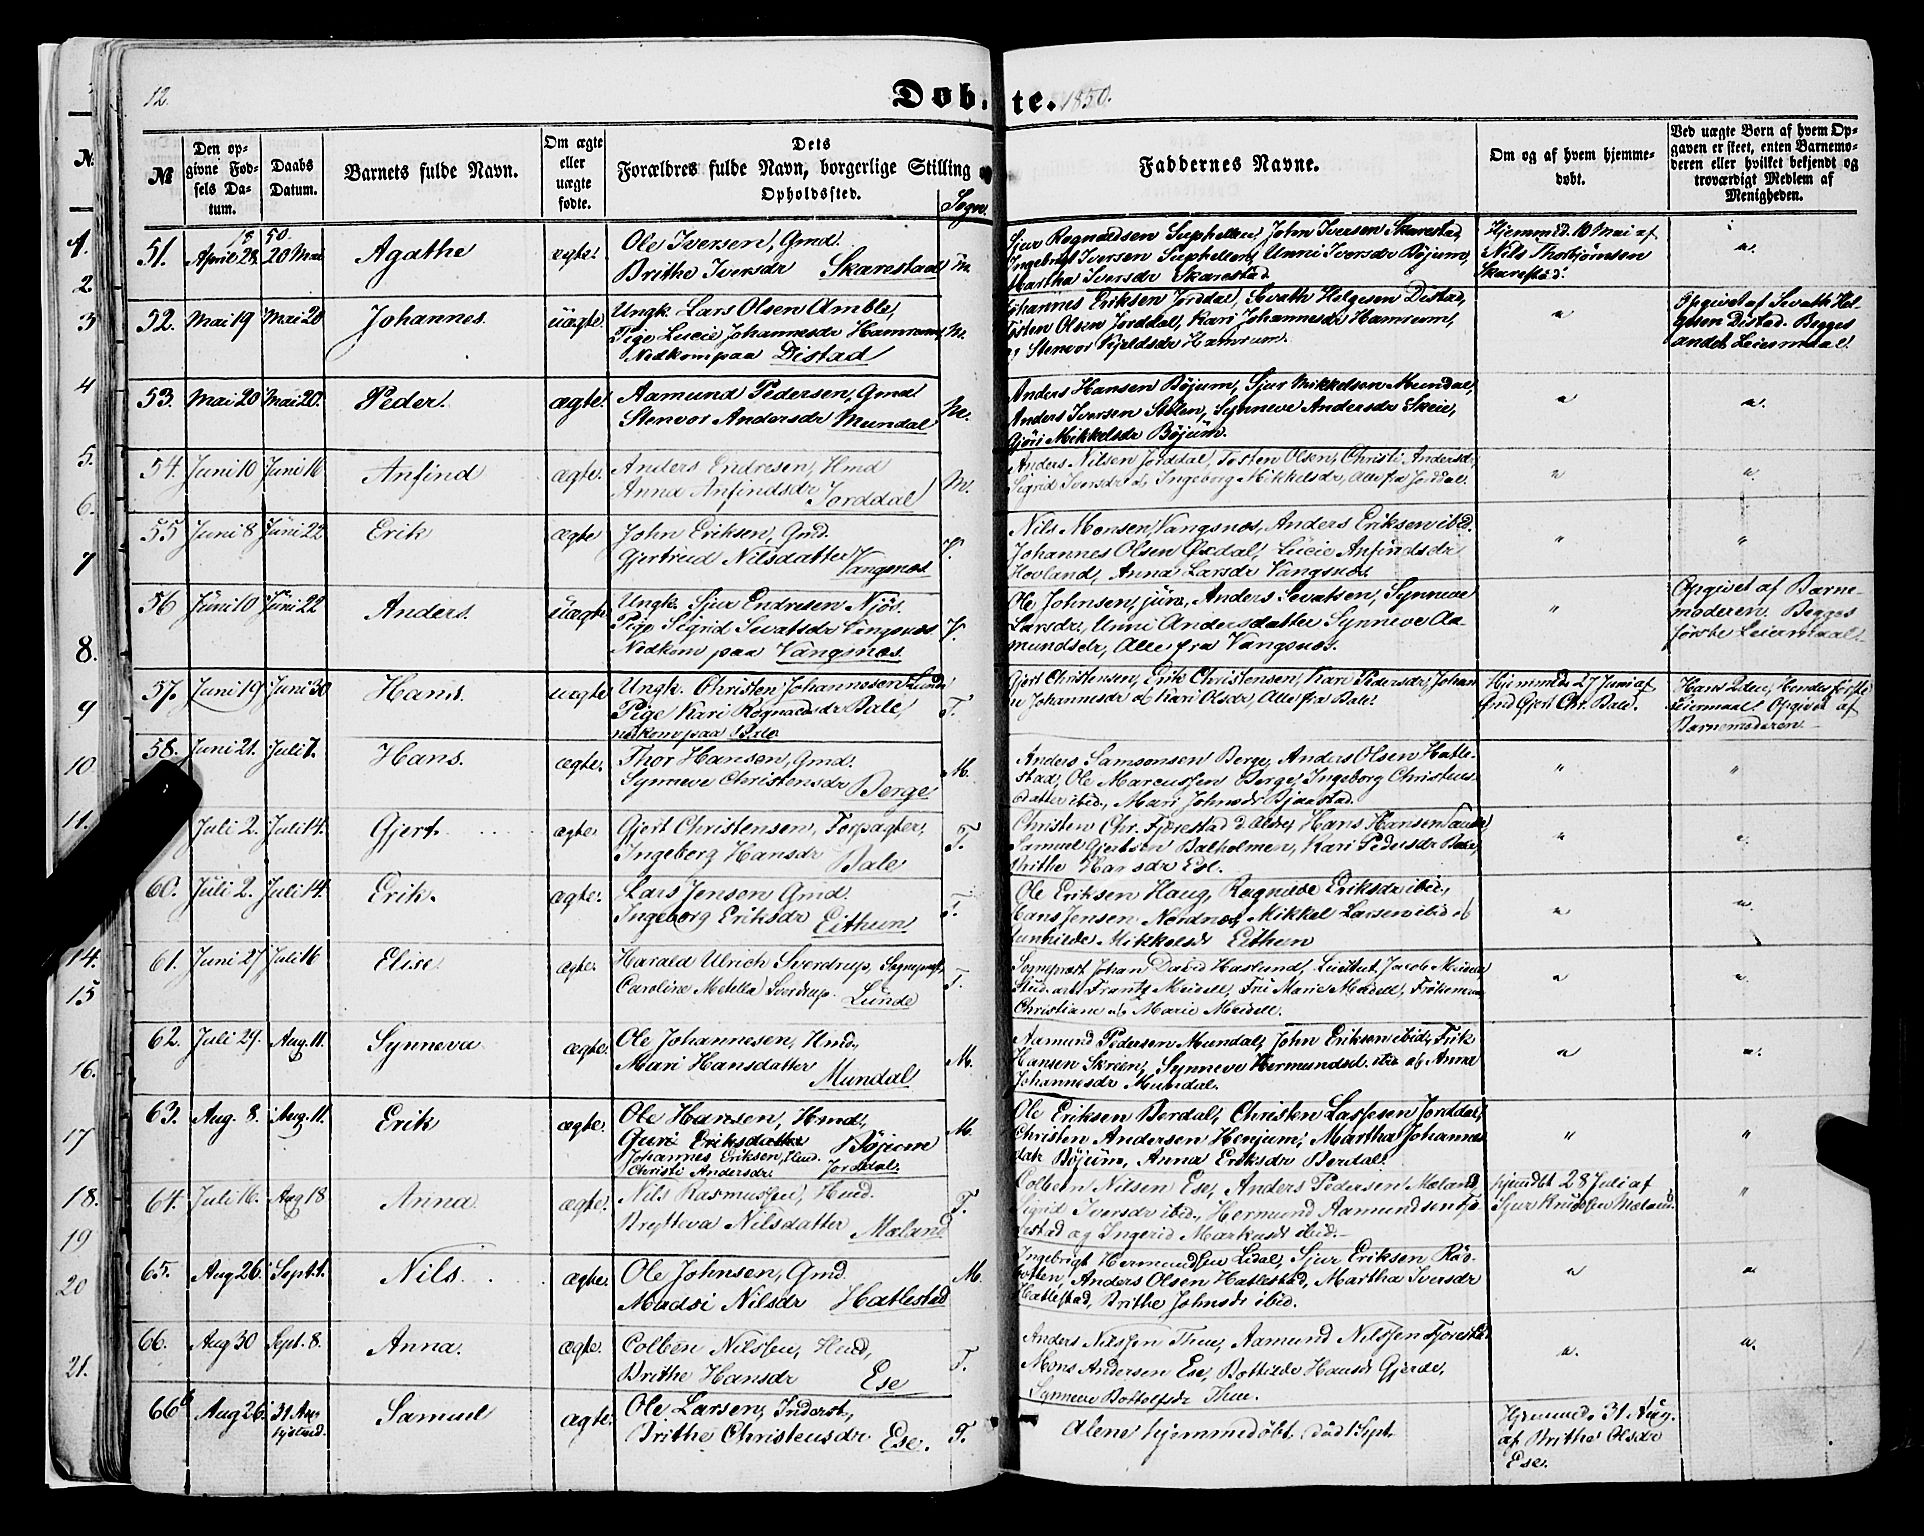 12.
Døbte. 1850.
№
Den opgivne Fødsels Datum.
Daabs Datum.
Barnets fulde Navn.
Om ægte eller uægte fødte.
Dets Forældres fulde Navn, borgerlige Stilling o
Opholdssted.
Sogn.
Faddernes Navne.
Om og af hvem hjemmedøbt.
Ved uægte Børn af hvem Opgaven er skeet, enten Barnemoderen eller hvilket bekjendt og troværdigt Medlem af Menigheden.
1850.
51. April 28. 20 Mai Agathe ægte.
Ole Iversen, Gmd.
Brithe Iversdr Skarestad M.
Sjur Rognaldsen Suphellen, John Iversen Skarestad,
Ingebrigt Iversen Suphellen, Unni Iversdr Bøjum,
Martha Iversdr Skarestad
Hjemmed. 10 Mai af
Nils Thorbjørnsen
Skarestad.
52. Mai 19 Mai 20 Johannes. uægte.
Ungk. Lars Olsen Amble,
Pige Lucie Johannesdr Hamrum,
Nedkom paa Distad M.
Johannes Eriksen Jorddal, Sevath Helgesen Distad,
Torsten Olsen Jorddal, Kari Johannesdr Hamrum,
og Stenvor Kjeldsdr Hamrum.
Opgivet af Sevath Helgesen Distad. Begges
andet Leiermaal.
53. Mai 20 Mai 20. Peder. ægte.
Aamund Pedersen, Gmd.
Stenvor Andersdr Mundal M.
Anders Hansen Bøjum, Sjur Mikkelsen Mundal,
Anders Iversen Stølen, Synneve Andersdr Skeie,
Gjøri Mikkelsdr Bøjum.
54. Juni 10 Juni 16 Anfind ægte.
Anders Endresen, Hmd
Anna Anfindsdr Jorddal M.
Anders Nilsen Jorddal, Tosten Olsen, Christi Andersdr,
Sigrid Iversdr & Ingeborg Mikkelsdr, Alle fra Jorddal.
55 Juni 8 Juni 22 Erik ægte
John Eriksen, Gmd.
Gjertrud Nilsdatter Vangsnes V.
Nils Monsen Vangsnes, Anders Eriksen ibid.
Johannes Olsen Øxdal, Lucie Anfindsdr
Hovland, Anna Larsdr Vangsnes.
56 Juni 10 Juni 22 Anders. uægte
Ungk. Sjur Endresen Njøs.
Pige Sigrid Sevatsdr Vangsnes.
Nedkom paa Vangsnes. V.
Ole Johnsen, jūn, Anders Sevatsen, Synneve
Larsdr, Unni Andersdatter Synneve Aamundsdr, Alle fra Vangsnes.
Opgivet af Barnemoderen. Begges
første Leiermaal.
57. Juni 19 Juni 30 Hans. uægte
Ungk. Christen Johannesen Lunde
Pige Kari Rognaldsdr Bale,
nedkom paa Bale T.
Gjert Christensen, Erik Christensen, Kari Pedersdr, Johan
Johannesdr & Kari Olsdr, Alle fra Bale.
Hjemmed. 27 Juni af
Gjert Chr. Bale.
Hans 2den, Hendes første
Leiermaal. Opgivet af
Barnemoderen
58. Juni 21. Juli 7. Hans. ægte.
Thor Hansen, Gmd.
Synneve Christensdr Berge M.
Anders Samsonsen Berge, Anders Olsen Hatlestad, Ole Marcussen Berge, Ingeborg Christensdatter ibid., Mari Johnsdr Bjåstad.
Juli 2. Juli 14. Gjert. ægte.
Gjert Christensen, Forpagter,
Ingeborg Hansdr Bale T.
Christen Chr. Fjærestad d. Ældre, Hans Hansen
Samuel Gjertsen Balholmen, Kari Pedersdr Bale,
Brithe Hansdr Ese.
60. Juli 2. Juli 14. Erik. ægte.
Lars Jensen Gmd.
Ingeborg Eriksdr Eithun T.
Ole Eriksen Haug, Rognilde Eriksdr ibid.,
Hans Jensen Nordnes, Mikkel Larsen ibid &
Gunhilde Mikkelsdr Eithun
61. Juni 27 Juli 16 Elise ægte.
Harald Ulrich Sverdrup, Sognepræst,
Caroline Metella Sverdrup. Lunde T.
Sognepræst Johan David Haslund, Jacob Meidell
Stud. art Frantz Meidell, Fru Marie Meidell, Frøknerne
Christiane & Marie Meidell.
62. Juli 29. Aug. 11. Synneva ægte.
Ole Johannesen, Hmd.,
Mari Hansdatter Mundal M.
Aamund Pedersen Mundal, John Eriksen ibid, Erik
Hansen Skreien, Synneve Hermundsd. ibid & Anna
Johannesdr Mundal.
63. Aug. 8. Aug. 11. Erik ægte.
Ole Hansen, Hmd.,
Guri Eriksdatter Bøjum
Johannes Eriksen, Hmd.
Christi Andersdr. Jorddal. M.
Ole Eriksen Berdal, Christen Lassesen Jorddal,
Christen Andersen Henjum, Martha Johannesdatr Bøjum, Anna Eriksdr Berdal.
64. Juli 16. Aug 18 Anna ægte.
Nils Rasmussen, Hmd.
Brytteva Nilsdatter Mæland T.
Colbein Nilsen Ese, Anders Pedersen Mæland,
Sigrid Iversdr ibid., Hermund Aamundsen Fjærestad og Ingerid Markusdr ibid.
hjemdøbt 28 Juli af
Sjur Knudssen Mæland.
65. Aug 26. Sept. 1. Nils. ægte.
Ole Johnsen, Gmd.
Madsi Nilsdr Hatlestad M.
Ingebrigt Hermundsen Lidal, Sjur Eriksen Røsbotten, Anders Olsen Hatlestad, Martha Iversdr
Hatlestad, Brithe Johnsdr ibid.
66. Aug 30 Sept. 8. Anna. ægte.
Colbein Nilssen, Hmd,
Brithe Hansdr Ese T.
Anders Nilssen Thue, Aamund Nilssen Fjærestad
Mons Andersen Ese, Bothilde Hansdr Gjerde,
Synneve Bottolfsdr Thue.
66b Aug 26. 31 Aug hjemd. Samuel ægte.
Ole Larsen, Inderst,
Brithe Christensdr Ese. T.
Alene hjemmedøbt. død 1 Sept.
Hjemmed. 31 Aug.
af Brithe Olsdr
Ese.